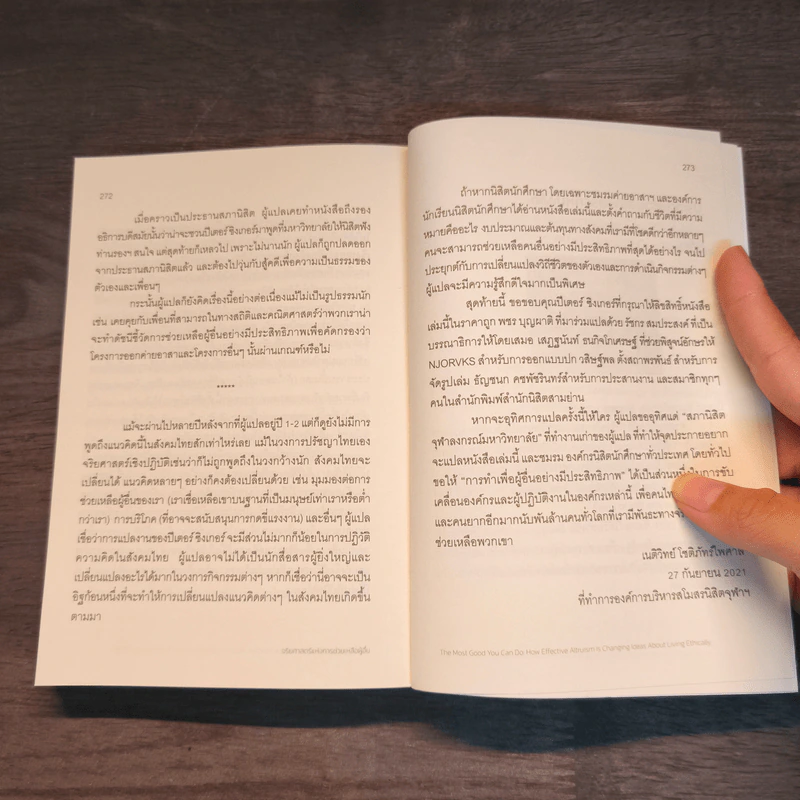 272
เมื่อคราวเป็นประธานสภานิสิต ผู้แปลเคยทำหนังสือถึงรอง
อธิการบดีสมัยนั้นว่าน่าจะชวนปีเตอร์ ซิงเกอร์มาพูดที่มหาวิทยาลัยให้นิสิตฟัง
ท่านรองฯ สนใจ แต่สุดท้ายก็เหลวไป เพราะไม่นานนัก ผู้แปลก็ถูกปลดออก
จากประธานสภานิสิตแล้ว และต้องไปวุ่นกับสู้คดีเพื่อความเป็นธรรมของ
ตัวเองและเพื่อนๆ
กระนั้นผู้แปลก็ยังคิดเรื่องนี้อย่างต่อเนื่องแม้ไม่เป็นรูปธรรมนัก
เช่น เคยคุยกับเพื่อนที่สามารถในทางสถิติและคณิตศาสตร์ว่าพวกเราน่า
จะทำดัชนีชี้วัดการช่วยเหลือผู้อื่นอย่างมีประสิทธิภาพเพื่อคัดกรองว่า
โครงการออกค่ายอาสาและโครงการอื่นๆ นั้นผ่านเกณฑ์หรือไม่
*****
แม้จะผ่านไปหลายปีหลังจากที่ผู้แปลอยู่ปี 1-2 แต่ก็ดูยังไม่มีการ
พูดถึงแนวคิดนี้ในสังคมไทยสักเท่าไหร่เลย แม้ในวงการปรัชญาไทยเอง
จริยศาสตร์เชิงปฏิบัติเช่นว่าก็ไม่ถูกพูดถึงในวงกว้างนัก สังคมไทยจะ
เปลี่ยนได้ แนวคิดหลายๆ อย่างก็คงต้องเปลี่ยนด้วย เช่น มุมมองต่อการ
ช่วยเหลือผู้อื่นของเรา (เราเชื่อเหลือเขาบนฐานที่เป็นมนุษย์เท่าเราหรือต่ำ
กว่าเรา) การบริโภค (ที่อาจจะสนับสนุนการกดขี่แรงงาน) และอื่นๆ ผู้แปล
เชื่อว่าการแปลงานของปีเตอร์ ซิงเกอร์ จะมีส่วนไม่มากก็น้อยในการปฏิวัติ
ความคิดในสังคมไทย ผู้แปลอาจไม่ได้เป็นนักสื่อสารผู้ยิ่งใหญ่และ
เปลี่ยนแปลงอะไรได้มากในวงการกิจกรรมต่างๆ หากก็เชื่อว่านี่อาจจะเป็น
อิฐก้อนหนึ่งที่จะทำให้การเปลี่ยนแปลงแนวคิดต่างๆ ในสังคมไทยเกิดขึ้น
ตามมา
จริยศาสตร์แห่งการช่วยเหลือผู้อื่น
273
ถ้าหากนิสิตนักศึกษา โดยเฉพาะชมรมค่ายอาสาฯ และองค์การ
นักเรียนนิสิตนักศึกษาได้อ่านหนังสือเล่มนี้และตั้งคำถามกับชีวิตที่มีความ
หมายคืออะไร งบประมาณและต้นทุนทางสังคมที่เรามีที่โชคดีกว่าอีกหลายๆ
คนจะสามารถช่วยเหลือคนอื่นอย่างมีประสิทธิภาพที่สุดได้อย่างไร จนไป
ประยุกต์กับการเปลี่ยนแปลงวิถีชีวิตของตัวเองและการดำเนินกิจกรรมต่างๆ
ผู้แปลจะมีความรู้สึกดีใจมากเป็นพิเศษ
สุดท้ายนี้ ขอขอบคุณปีเตอร์ ซิงเกอร์ที่กรุณาให้ลิขสิทธิ์หนังสือ
เล่มนี้ในราคาถูก พชร บุญผาติ ที่มาร่วมแปลด้วย รัชกร สมประสงค์ ที่เป็น
บรรณาธิการให้โดยเสมอ เสฎฐนันท์ ธนกิจโกเศรษฐ์ ที่ช่วยพิสูจน์อักษรให้
NJORVKS สำหรับการออกแบบปก วสิษฐ์พล ตั้งสถาพรพันธ์ สำหรับการ
จัดรูปเล่ม ธัญชนก คชพัชรินทร์สำหรับการประสานงาน และสมาชิกทุกๆ
คนในสำนักพิมพ์สำนักนิสิตสามย่าน
หากจะอุทิศการแปลครั้งนี้ให้ใคร ผู้แปลขออุทิศแด่ “สภานิสิต
จุฬาลงกรณ์มหาวิทยาลัย” ที่ทำงานเก่าของผู้แปล ที่ทำให้จุดประกายอยาก
จะแปลหนังสือเล่มนี้ และชมรม องค์กรนิสิตนักศึกษาทั่วประเทศ โดยทั่วไป
ขอให้ “การทำเพื่อผู้อื่นอย่างมีประสิทธิภาพ” ได้เป็นส่วนหนึ่งในการขับ
เคลื่อนองค์กรและผู้ปฏิบัติงานในองค์กรเหล่านี้ เพื่อคนไทย
และคนยากอีกมากนับพันล้านคนทั่วโลกที่เรามีพันธะทาง
ช่วยเหลือพวกเขา
เนติวิทย์ โชติภัทร์ไพศาล
27 กันยายน 2021
ที่ทำการองค์การบริหารสโมสรนิสิตจุฬาฯ
The Most Good You Can Do: How Effective Altruism Is Changing Ideas About Living Ethically